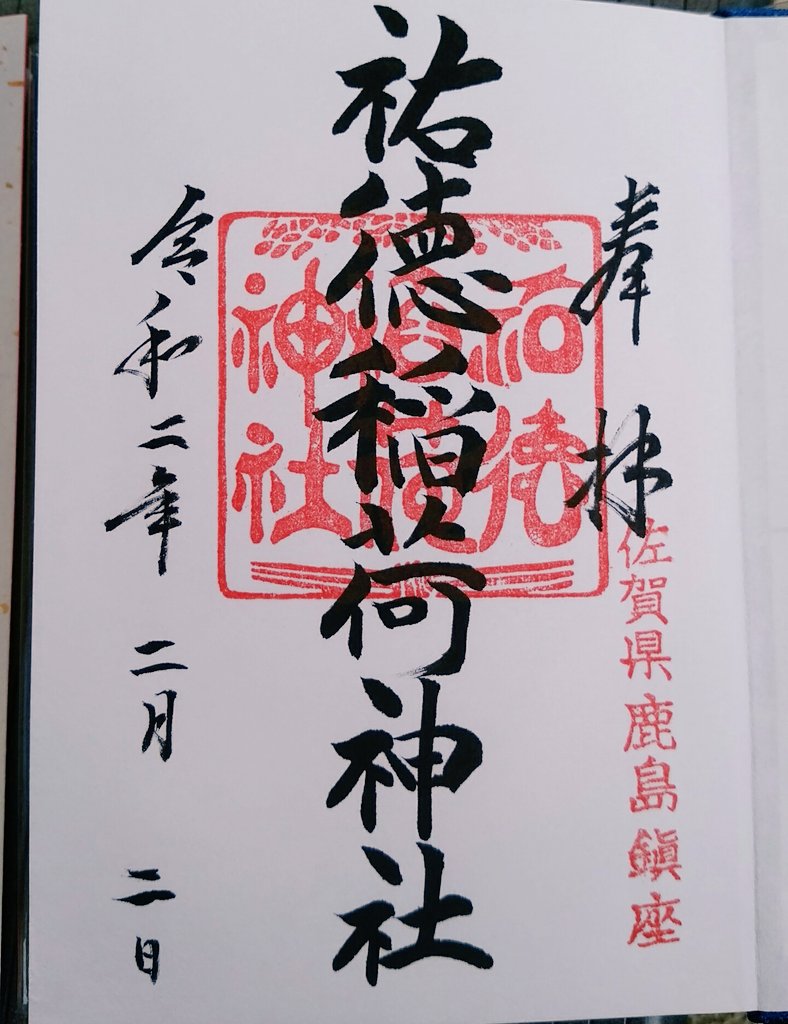 奉拝
佐賀県鹿島鎮座
祐徳稲荷神社
祐徳
稲荷
神社
令和二年 二月 二日